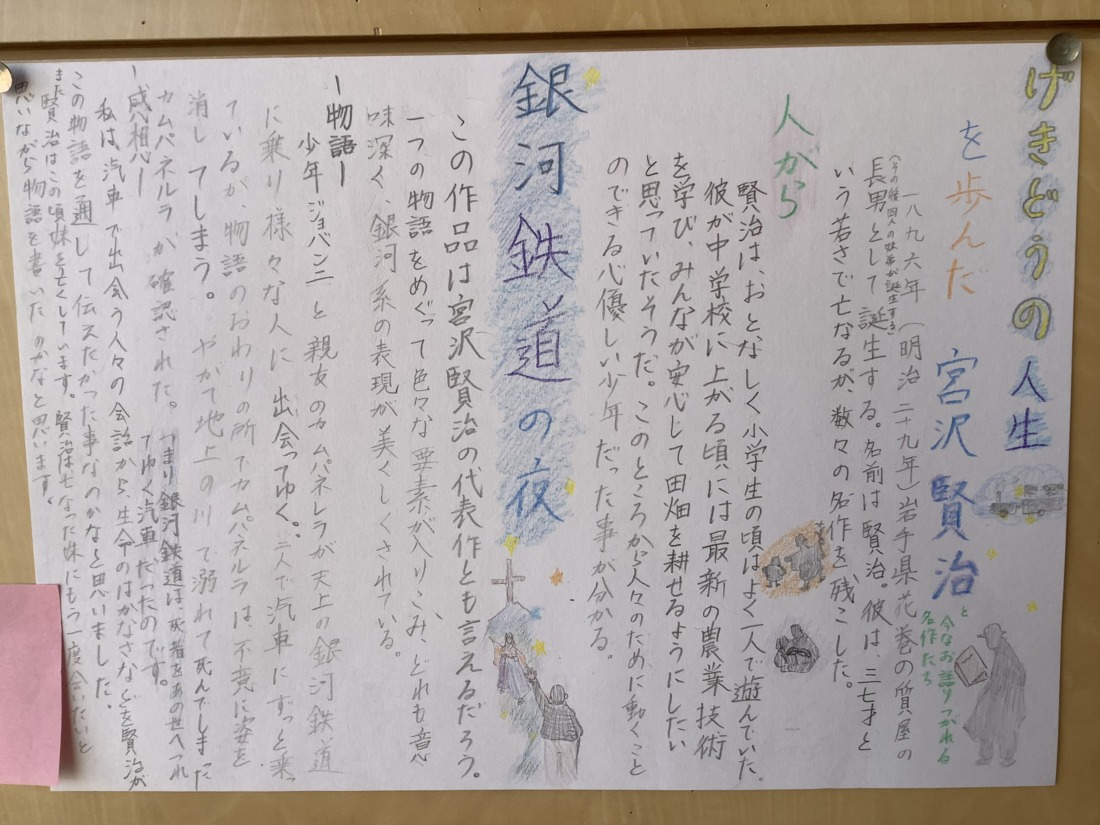 げきどうの人生
を歩んだ 宮沢賢治
と今なお語りつがれる
名作たち
一八九六年(明治二十九年)岩手県花巻の質屋の
長男として誕生する。名前は賢治。彼は、三七才と
(その後四人の妹弟が誕生する)
いう若さで亡なるが、数々の名作を残こした。
人がら
賢治は、おとなしく小学生の頃はよく一人で遊んでいた。
彼が中学校に上がる頃には最新の農業技術
を学び、みんなが安心して田畑を耕せるようにしたい
と思っていたそうだ。このところから人々のために動くこと
のできる心優しい少年だった事が分かる。
銀河鉄道の夜
この作品は宮沢賢治の代表作とも言えるだろう。
一つの物語をめぐって色々な要素が入りこみ、どれも意
味深く、銀河系の表現が美くしくされている。
ー物語ー
少年ジョバンニと親友のカムパネレラが天上の銀河鉄道
に乗り様々な人に出会ってゆく。二人で汽車にずっと乗っ
ているが、物語のおわりの所でカムパネルラは不意に姿を
消してしまう。やがて地上の川で溺れて死んでしまった
カムパネルラが確認された。つまり銀河鉄道は、死者をあの世へつれ
てゆく汽車だったのです。
ー感相ー
私は、汽車で出会う人々の会話から、生命のはかなさなどを賢治が
この物語を通して伝えたかった事なのかなと思いました。
また賢治はこの頃妹を亡くしています。賢治は亡なった妹にもう一度会いたいと
思いながら物語を書いたのかなと思います。